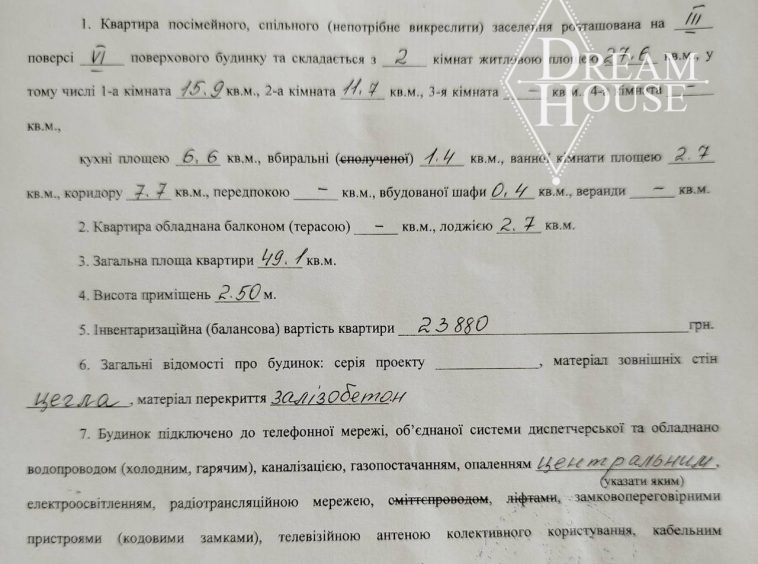 1. Квартира посімейного, спільного (непотрібне викреслити) заселення розташована на III
поверсі VI поверхового будинку та складається з 2 кімнат житловою площею 27,6 кв.м., у
тому числі 1-а кімната 15.9 кв.м., 2-а кімната 11,7 кв.м., 3-я кімната – кв.м. 4-а кімната –
кв.м.,
DREAM
HOUSE
кухні площею 6,6 кв.м., вбиральні (сполученої) 1.4 кв.м., ванної кімнати площею 2.7
кв.м., коридору 7.7 кв.м., передпокою – кв.м., вбудованої шафи 0,4 кв.м., веранди – кв.м.
2. Квартира обладнана балконом (терасою) – кв.м., лоджією 2.7 кв.м.
3. Загальна площа квартири 49.1 кв.м.
4. Висота приміщень 2.50 м.
5. Інвентаризаційна (балансова) вартість квартири 23880 грн.
6. Загальні відомості про будинок: серія проекту ____________, матеріал зовнішніх стін
цегла, матеріал перекриття залізобетон
7. Будинок підключено до телефонної мережі, об’єднаної системи диспетчерської та обладнано
водопроводом (холодним, гарячим), каналізацією, газопостачанням, опаленням центральним,
(указати яким)
електроосвітленням, радіотрансляційною мережею, сміттєпроводом, ліфтами, замковопереговірними
пристроями (кодовими замками), телевізійною антеною колективного користування, кабельним